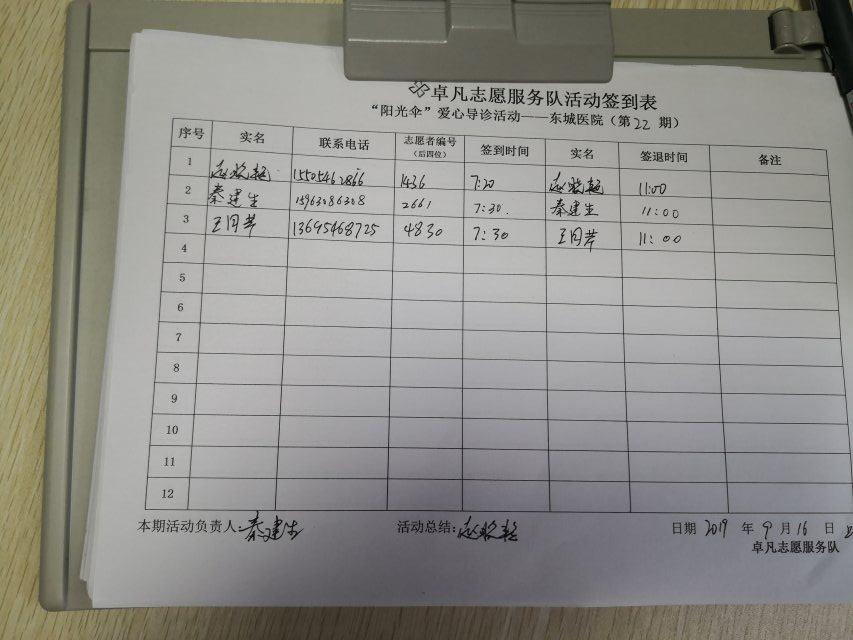 卓凡志愿服务队活动签到表
“阳光伞”爱心导诊活动——东城医院（第22期）
序号 实名 联系电话 志愿者编号（后四位） 签到时间 实名 签退时间 备注
1 15505462866 1436 7:20 11:00
2 秦建生 15963086308 2661 7:30. 秦建生 11:00
3 13695468725 4830 7:30 11:00
4
5
6
7
8
9
10
11
12
本期活动负责人:秦建生 活动总结: 日期 2019 年 9 月 16 日
卓凡志愿服务队